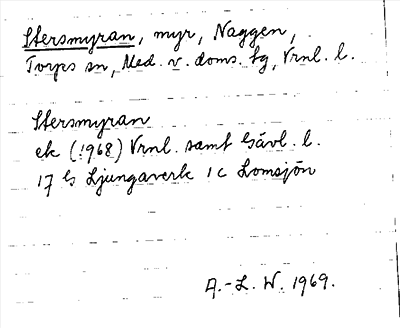 Stersmyran, myr, Naggen,
Torps sn, Med. v. doms. tg, Vrnl. l.
Stersmyran
ek (1968) Vrnl. samt Gävl. l.
17 G Ljungaverk 1c Lomsjön
A.-L. W. 1969.